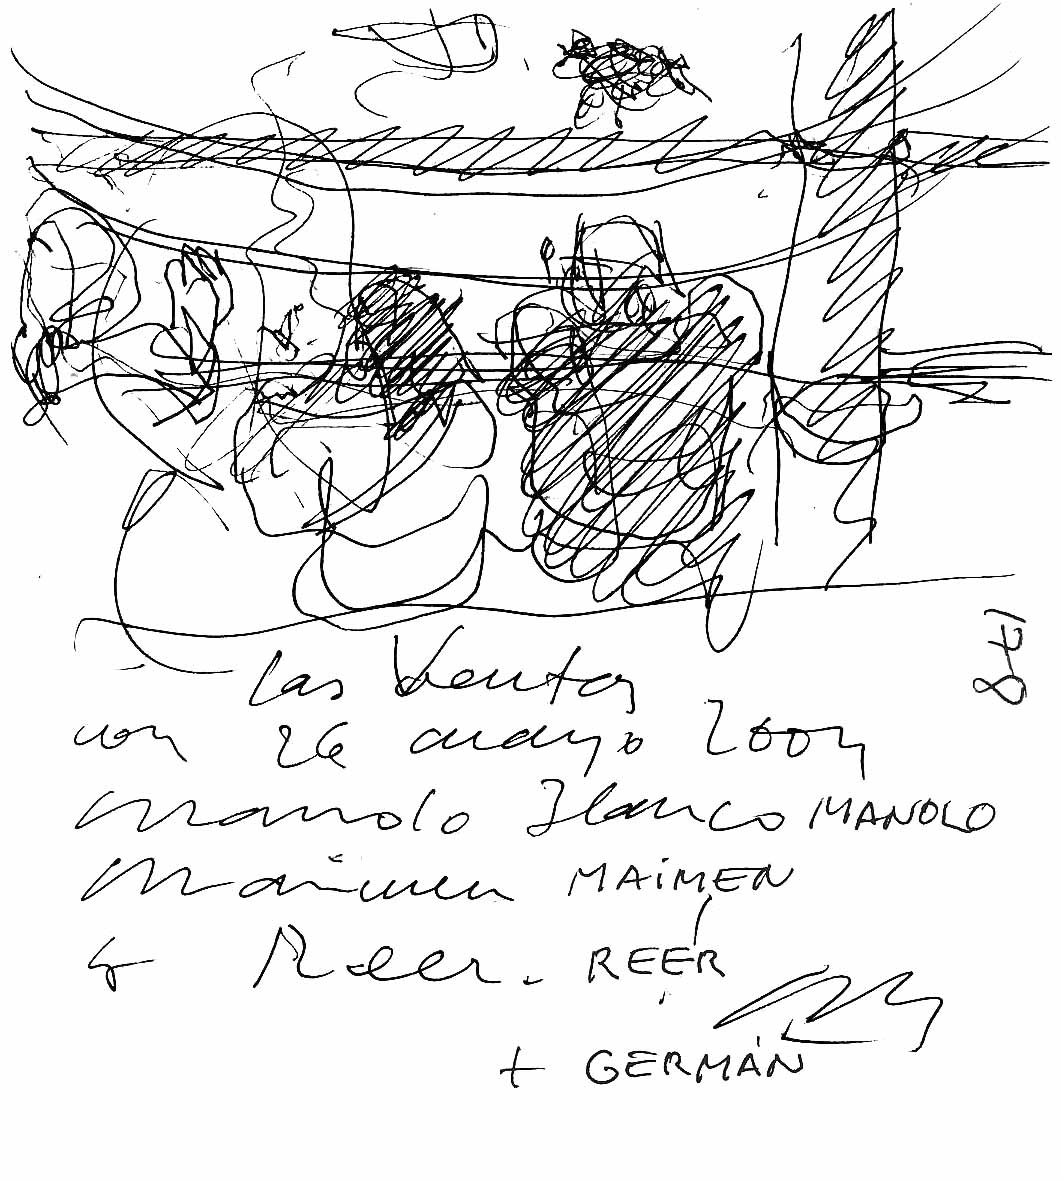 Las Ventas
con 26 mayo 2004
Manolo Blanco MANOLO
Maimen MAiMEN
y Reer. REÉR
+ GERMÁN